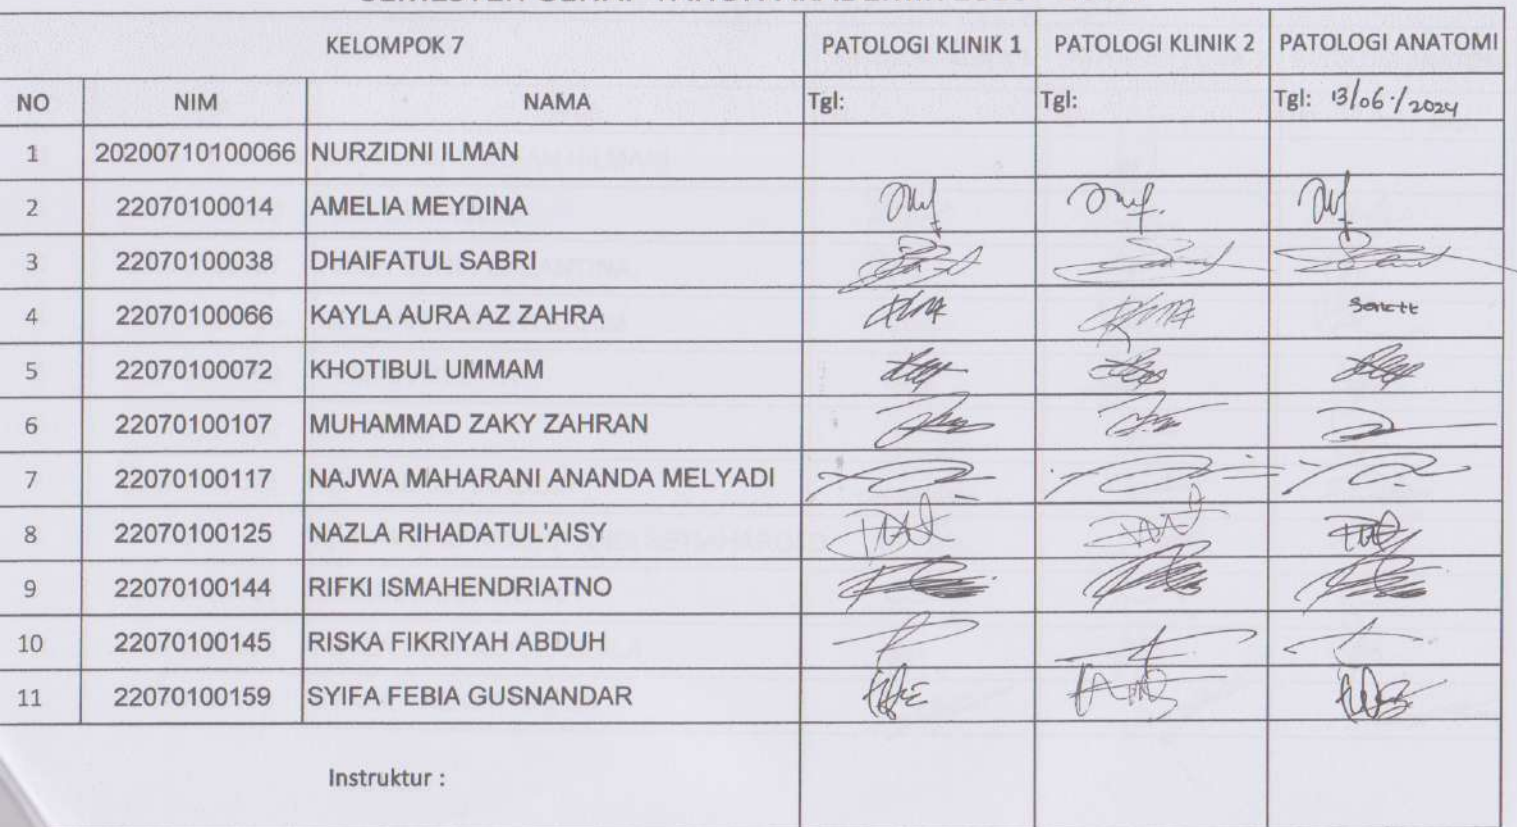 KELOMPOK 7 PATOLOGI KLINIK 1 PATOLOGI KLINIK 2 PATOLOGI ANATOMI
NO NIM NAMA Tgl: Tgl: Tgl: 13/06/2024
1 20200710100066 NURZIDNI ILMAN
2 22070100014 AMELIA MEYDINA
3 22070100038 DHAIFATUL SABRI
4 22070100066 KAYLA AURA AZ ZAHRA
5 22070100072 KHOTIBUL UMMAM
6 22070100107 MUHAMMAD ZAKY ZAHRAN
7 22070100117 NAJWA MAHARANI ANANDA MELYADI
8 22070100125 NAZLA RIHADATUL'AISY
9 22070100144 RIFKI ISMAHENDRIATNO
10 22070100145 RISKA FIKRIYAH ABDUH
11 22070100159 SYIFA FEBIA GUSNANDAR
Instruktur :